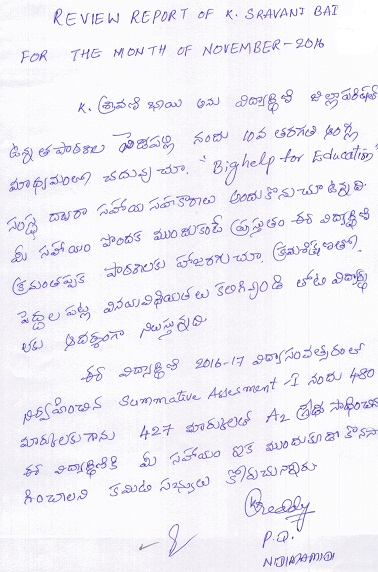 REVIEW REPORT OF K. SRAVANI BAI
FOR THE MONTH OF NOVEMBER-2016
K. శ్రావణి బాయి అను విద్యార్థిని జిల్లాపరిషత్
ఉన్నత పాఠశాల నందు 10వ తరగతి ఆంగ్ల
మాధ్యమంలో చదువుచూ. "Bighelp for Education"
సంస్థ ద్వారా సహాయ సహకారాలు అందుకొనుచూ ఉన్నది.
మీ సహాయం పొందక ముందుకంటే ప్రస్తుతం ఈ విద్యార్థిని
క్రమంతప్పక పాఠశాలకు హాజరగుచూ, క్రమశిక్షణతో,
పెద్దల పట్ల వినయవిధేయతలు కలిగియుండి తోటి విద్యార్థు
లకు ఆదర్శంగా నిలుస్తున్నది.
ఈ విద్యార్థిని 2016-17 విద్యాసంవత్సరంలో
నిర్వహించిన Summative Assesment-I నందు 480
మార్కులకుగాను 427 మార్కులతో A2 గ్రేడు సాధించిన
ఈ విద్యార్థినికి మీ సహాయం ఇక ముందుకూడా కొనసా
గించాలని కమిటి సభ్యులు కోరుచున్నారు.
Reddy
P.D.